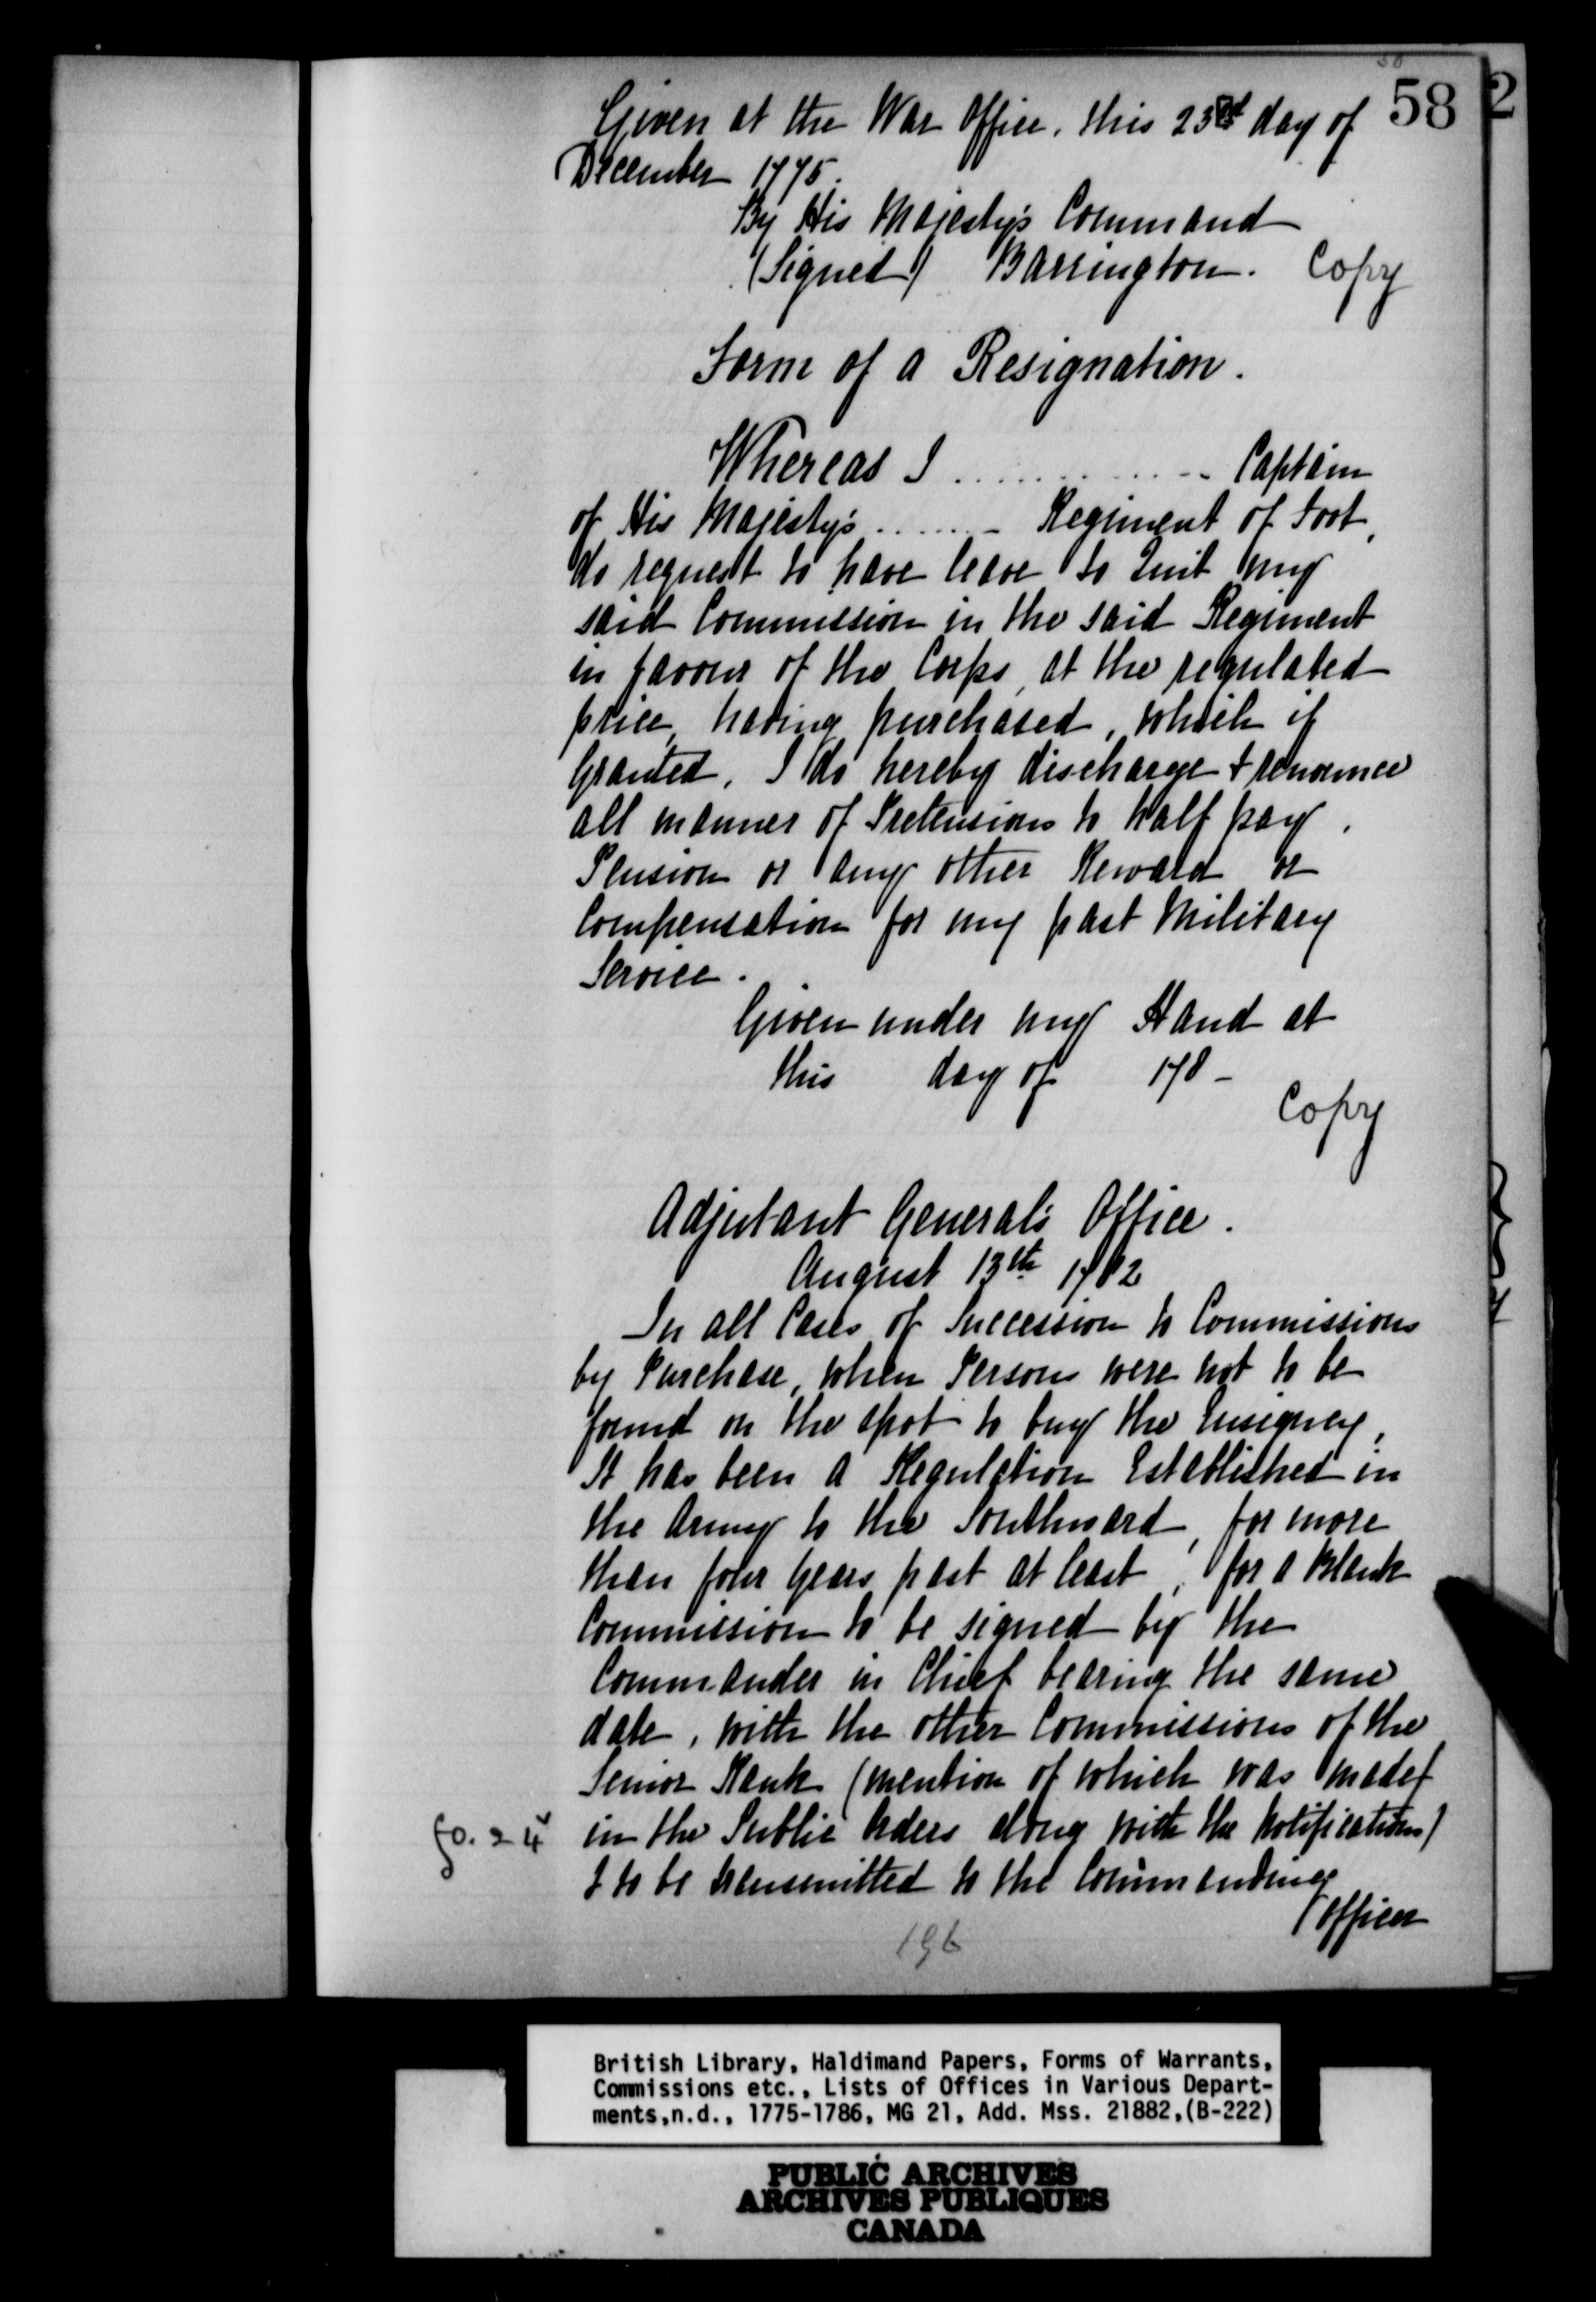 58
Given at the War Office, this 23d day of
December 1775.
By His Majesty's Command
(Signed) Barrington. Copy
Form of a Resignation.
Whereas I ............. Captain
of His Majesty's ....... Regiment of Foot,
do request to have leave to Quit my
said Commission in the said Regiment
in favour of the Corps, at the regulated
price, having purchased, which if
Granted, I do hereby discharge & renounce
all manner of Pretensions to half pay,
Pension or any other Reward or
Compensation for my past Military
Service.
Given under my Hand at
this day of 178-
Copy
Adjutant General's Office.
August 13th 1782
In all Cases of Succession to Commissions
by Purchase, when Persons were not to be
found on the spot to buy the Ensigncy,
It has been a Regulation Established in
the Army to the Southward, for more
than four Years past at least, for a Blank
Commission to be signed by the
Commander in Chief bearing the same
date, with the other Commissions of the
Senior Rank (mention of which was made
fo. 24 in the Public Orders along with the Notification)
& to be transmitted to the Commanding
Officer
196
British Library, Haldimand Papers, Forms of Warrants,
Commissions etc., Lists of Offices in Various Depart-
ments,n.d., 1775-1786, MG 21, Add. Mss. 21882,(B-222)
PUBLIC ARCHIVES
ARCHIVES PUBLIQUES
CANADA